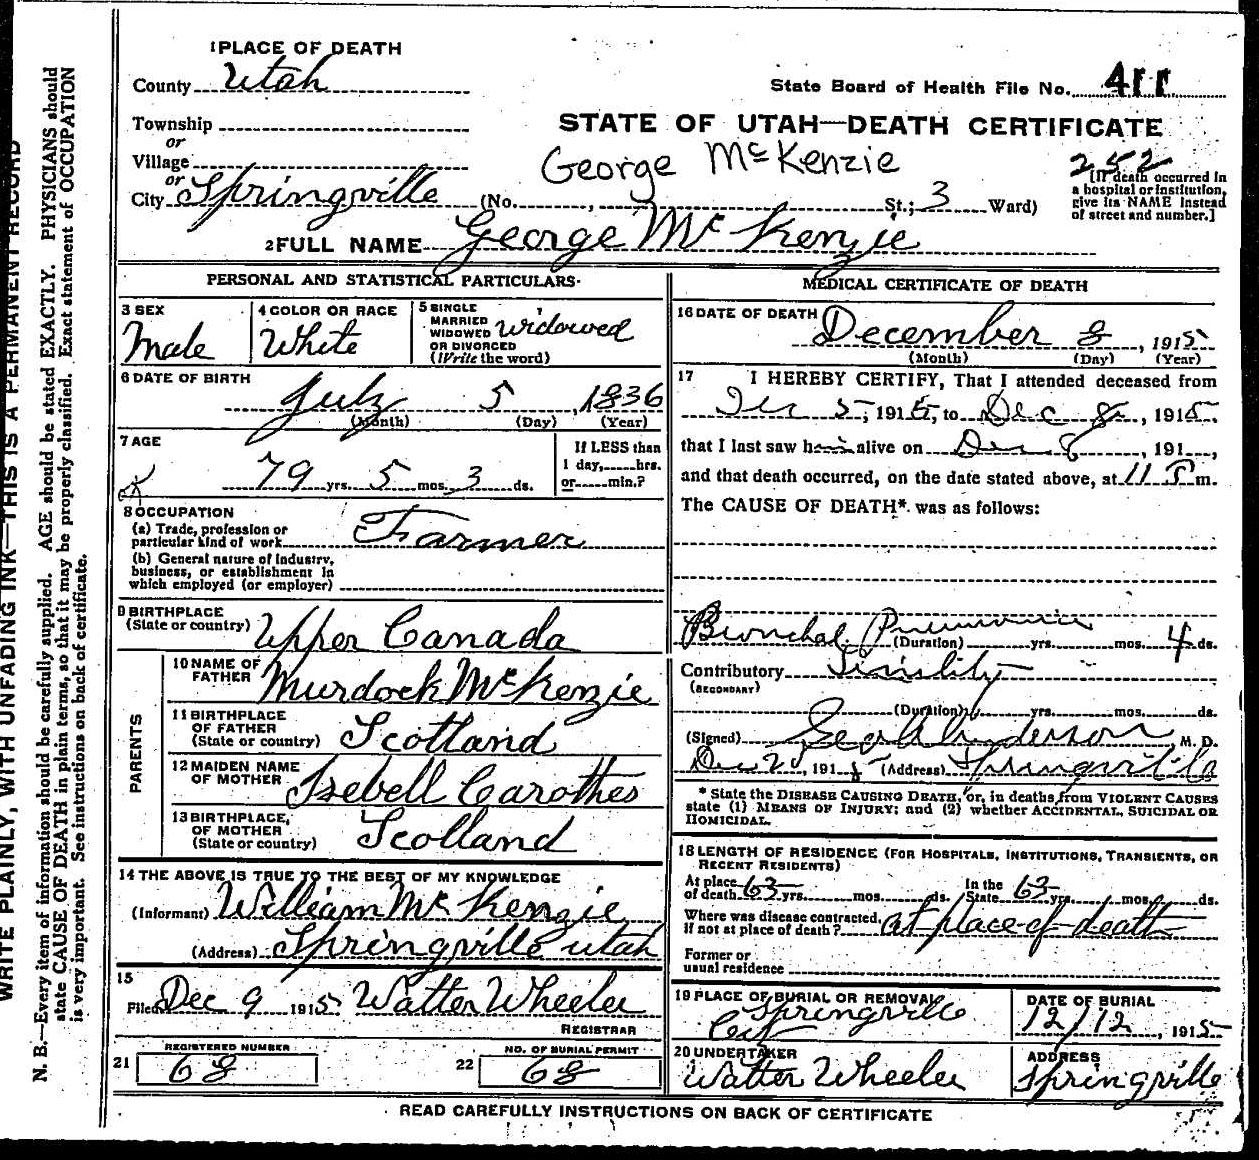 1 PLACE OF DEATH
County Utah
State Board of Health File No. 411
Township
or
Village
or
City Springville
STATE OF UTAH—DEATH CERTIFICATE
George McKenzie
252
(No. , St.; 3 Ward)
[If death occurred in
a hospital or institution,
give its NAME instead
of street and number.]
2 FULL NAME George McKenzie
PERSONAL AND STATISTICAL PARTICULARS
3 SEX
Male
4 COLOR OR RACE
White
5 SINGLE
MARRIED
WIDOWED
OR DIVORCED
(Write the word)
Widowed
6 DATE OF BIRTH
July 5, 1836
(Month) (Day) (Year)
7 AGE
79 yrs. 5 mos. 3 ds.
If LESS than
1 day, hrs.
or min.?
8 OCCUPATION
(a) Trade, profession or
particular kind of work Farmer
(b) General nature of Industry,
business, or establishment in
which employed (or employer)
9 BIRTHPLACE
(State or country) Upper Canada
PARENTS
10 NAME OF
FATHER Murdock McKenzie
11 BIRTHPLACE
OF FATHER
(State or country) Scotland
12 MAIDEN NAME
OF MOTHER Isebell Carothes
13 BIRTHPLACE,
OF MOTHER
(State or country) Scotland
14 THE ABOVE IS TRUE TO THE BEST OF MY KNOWLEDGE
(Informant) William McKenzie
(Address) Springville Utah
15
Filed Dec 9 1915 Walter Wheeler
REGISTRAR
21 REGISTERED NUMBER
68
22 NO. OF BURIAL PERMIT
68
MEDICAL CERTIFICATE OF DEATH
16 DATE OF DEATH December 8, 1915
(Month) (Day) (Year)
17 I HEREBY CERTIFY, That I attended deceased from
Dec 5, 1915, to Dec 8, 1915.
that I last saw him alive on Dec 8, 191 ,
and that death occurred, on the date stated above, at 11 P m.
The CAUSE OF DEATH* was as follows:
Bronchal Pneumonia (Duration) yrs. mos. 4 ds.
Contributory Sinility
(SECONDARY)
(Duration) yrs. mos. ds.
(Signed) Geo Anderson M. D.
Dec , 1915 (Address) Springville
* State the DISEASE CAUSING DEATH, or, in deaths from VIOLENT CAUSES
state (1) MEANS OF INJURY; and (2) whether ACCIDENTAL, SUICIDAL OR
HOMICIDAL.
18 LENGTH OF RESIDENCE (FOR HOSPITALS, INSTITUTIONS, TRANSIENTS, OR
RECENT RESIDENTS)
At place
of death 63 yrs. mos. ds.
In the
State 63 yrs. mos. ds.
Where was disease contracted,
if not at place of death? at place of death
Former or
usual residence
19 PLACE OF BURIAL OR REMOVAL
Springville
City
DATE OF BURIAL
12/12, 1915
20 UNDERTAKER
Walter Wheeler
ADDRESS
Springville
READ CAREFULLY INSTRUCTIONS ON BACK OF CERTIFICATE
WRITE PLAINLY, WITH UNFADING INK—THIS IS A PERMANENT RECORD
N. B.—Every item of information should be carefully supplied. AGE should be stated EXACTLY. PHYSICIANS should
state CAUSE OF DEATH in plain terms, so that it may be properly classified. Exact statement of OCCUPATION
is very important. See instructions on back of certificate.